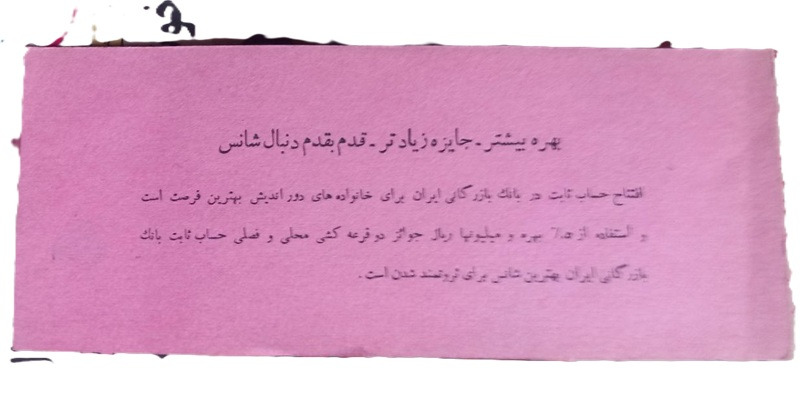 بهره بیشتر ـ جایزه زیادتر ـ قدم بقدم دنبال شانس
افتتاح حساب ثابت در بانك بازرگانی ایران برای خانواده های دور اندیش بهترین فرصت است
و استفاده از ٪ بهره و میلیونها ریال جوائز دو قرعه کشی محلی و فصلی حساب ثابت بانك
بازرگانی ایران بهترین شانس برای ثروتمند شدن است .